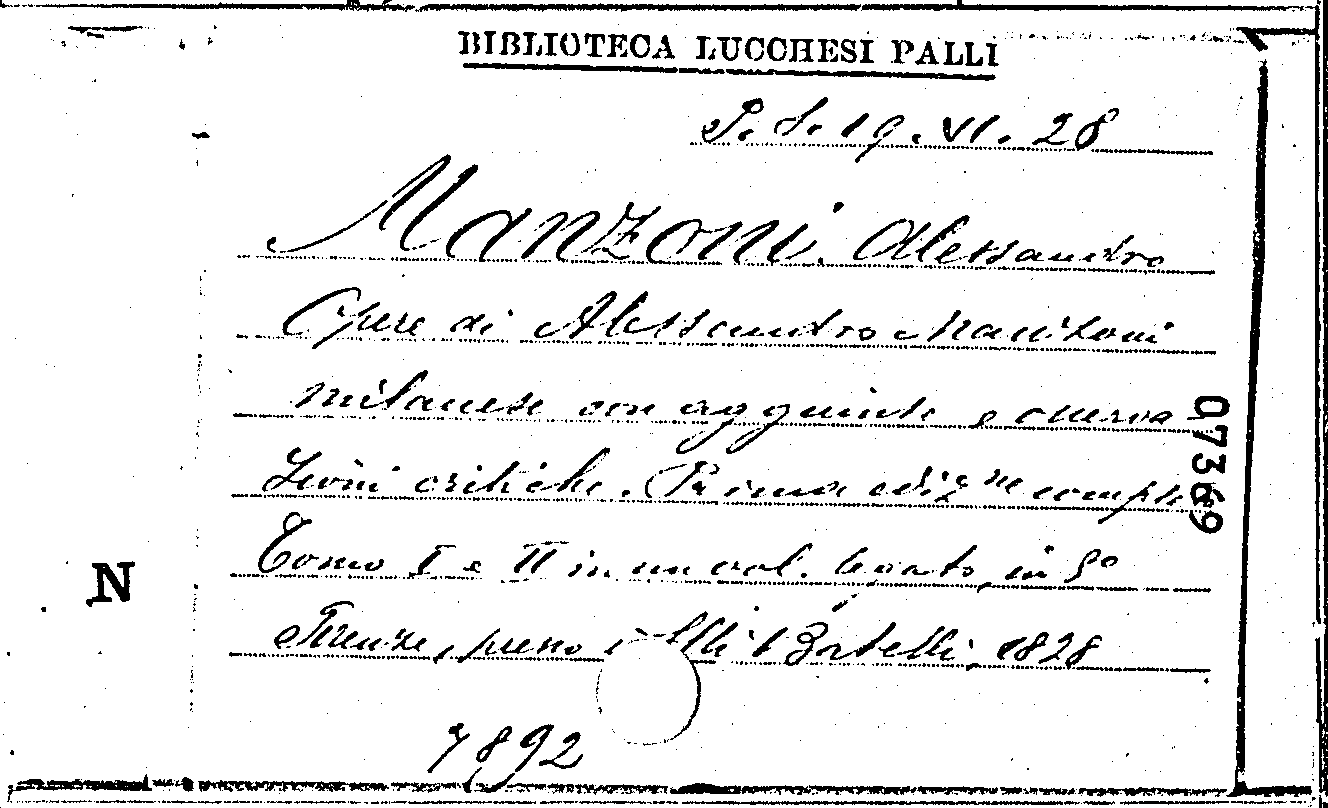 BIBLIOTECA LUCCHESI PALLI
P. S. 19. VI. 28
Manzoni. Alessandro
Opere di Alessandro Manzoni
milanese con aggiunte e osserva
zioni critiche. Prima ediz.ne completa
Tomo I e II in un vol. legato, in 8º
Firenze, presso i f.lli Batelli, 1828
7892
N
07369